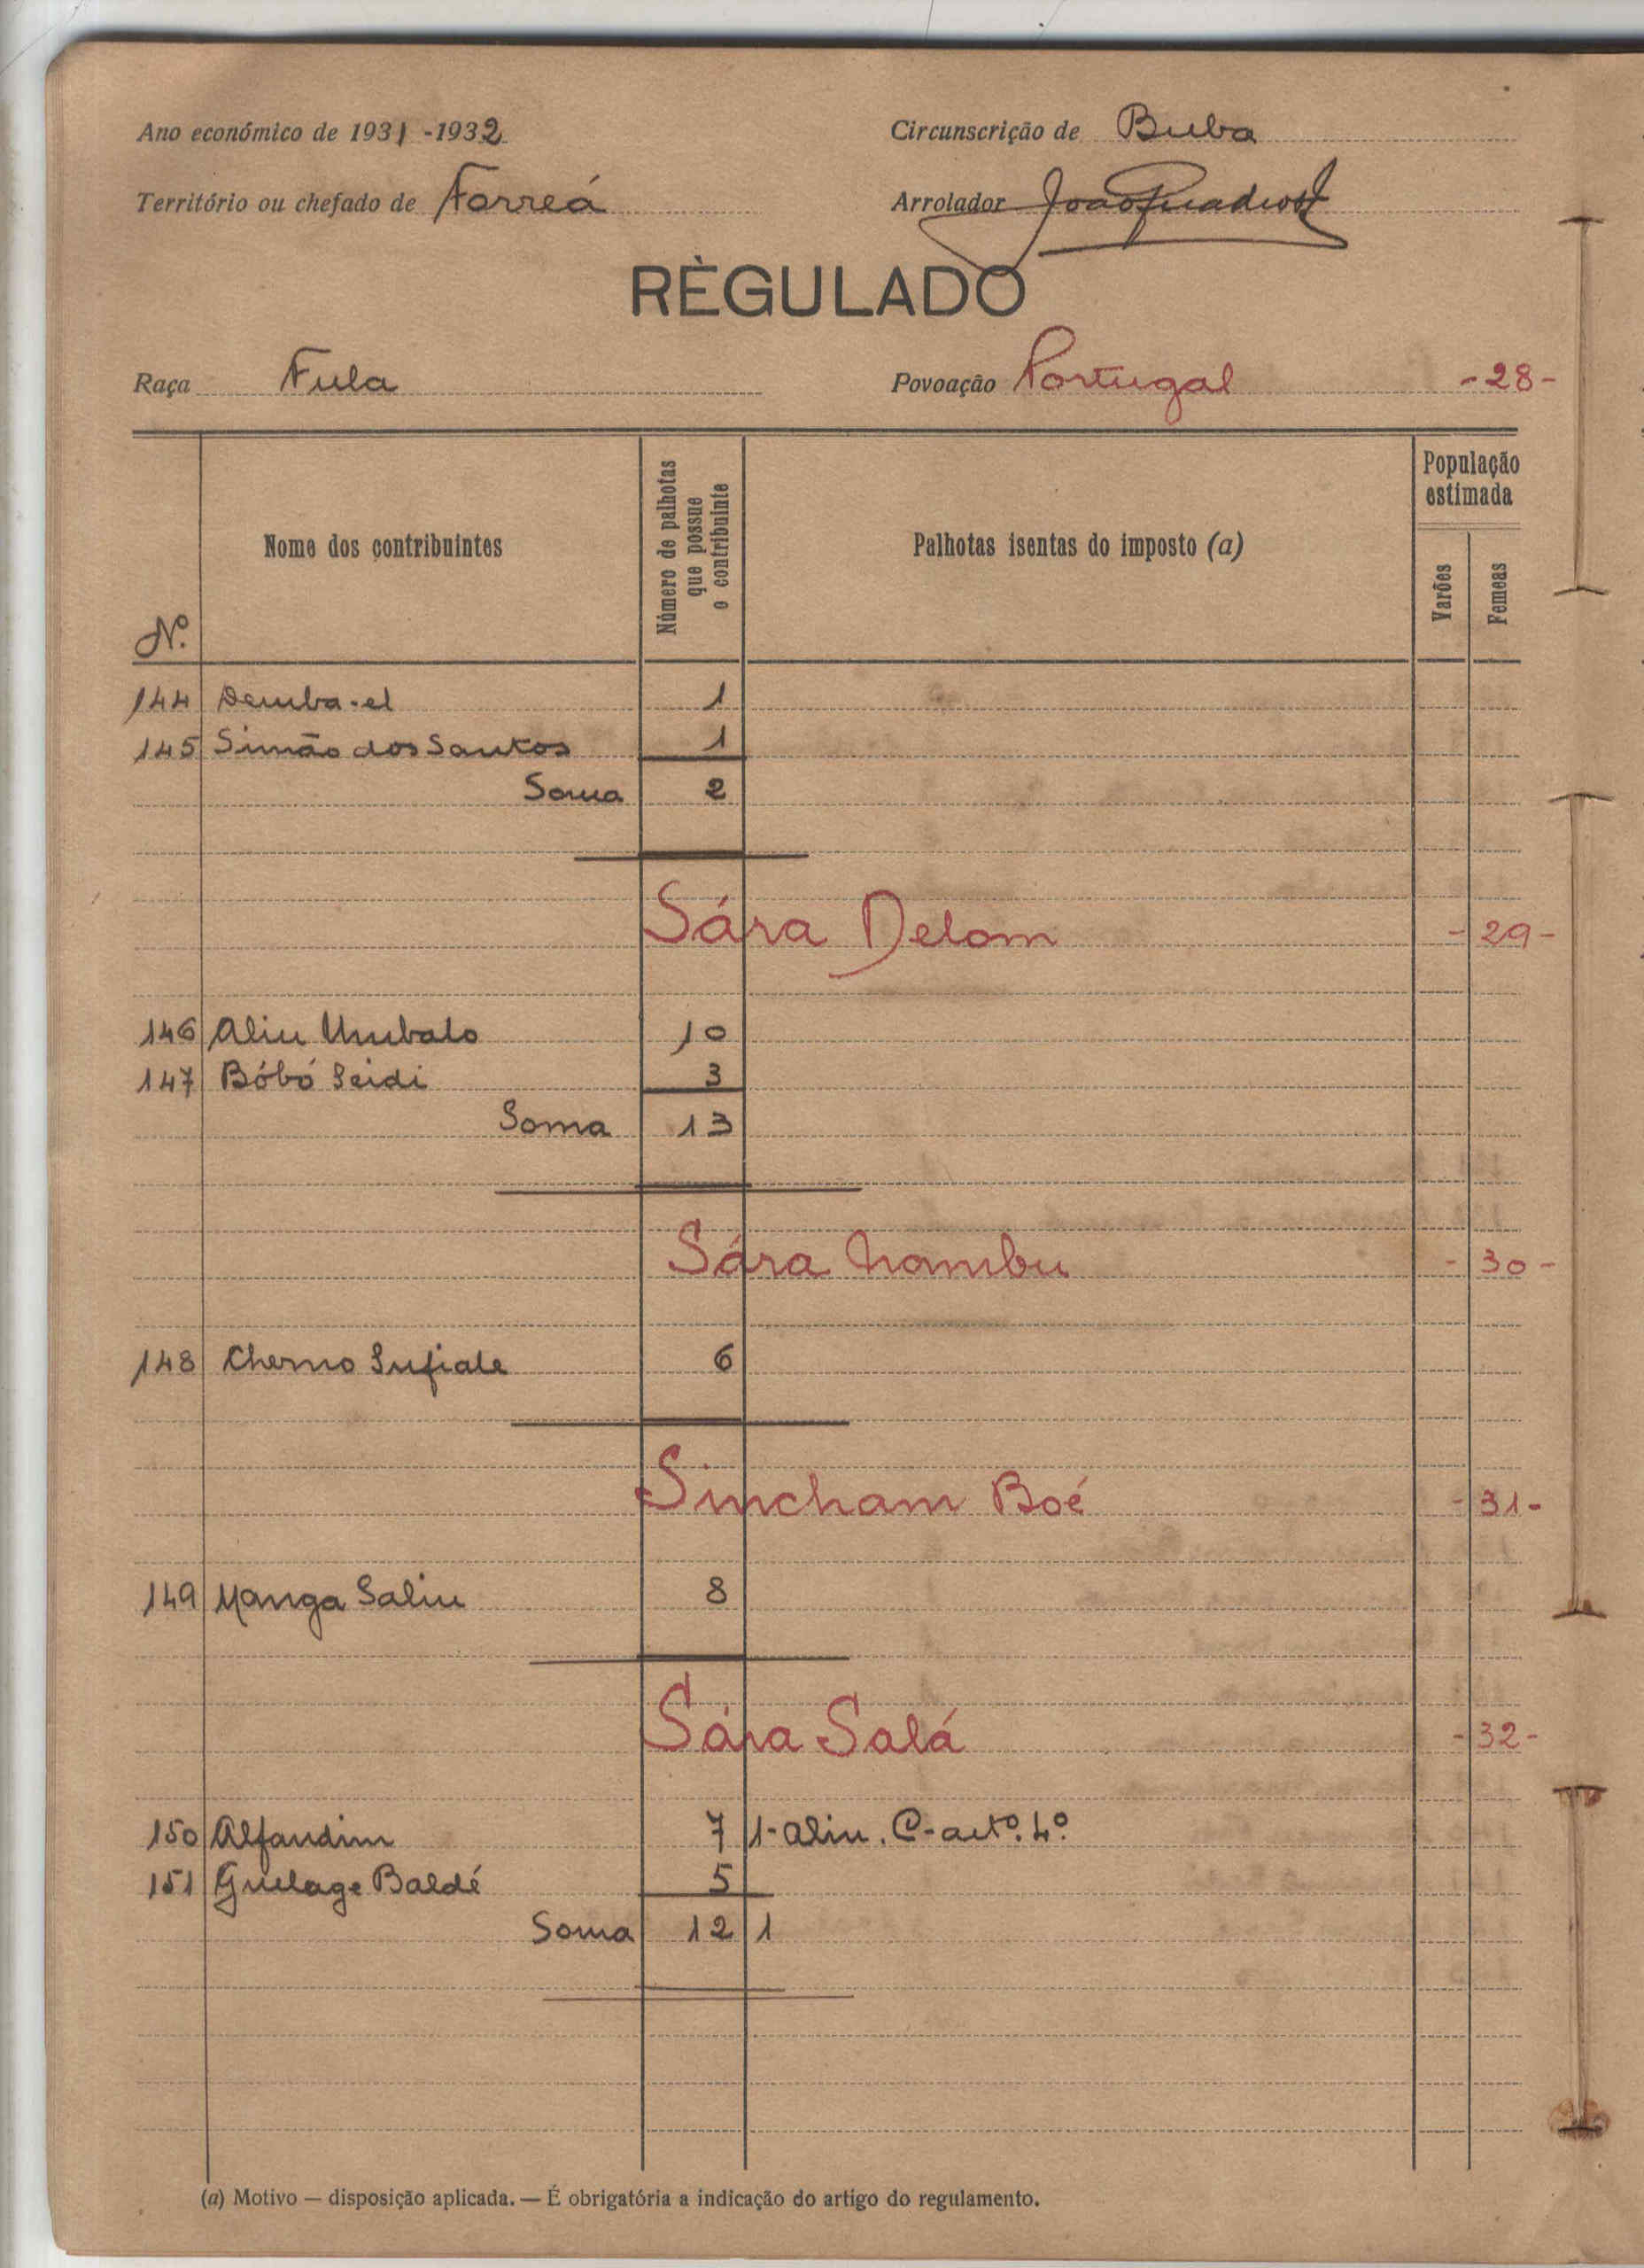 Ano económico de 1931-1932
Circunscrição de Buba
Território ou chefado de Forreá
Arrolador
RÈGULADO
Raça Fula
Povoação Portugal -28-
N.º
Nome dos contribuintes
Número de palhotas que possue o contribuinte
Palhotas isentas do imposto (a)
População estimada
Varões
Femeas
144 Demba-el 1
145 Simão dos Santos 1
Soma 2
Sára Delom -29-
146 Aliu Umbalo 10
147 Bóbó Seidi 3
Soma 13
Sára Nambu -30-
148 Cherno Sufiale 6
Sincham Boé -31-
149 Manga Saliu 8
Sára Salá -32-
150 Alfandim 7 1- alin. C- artº. 4º
151 Guelage Baldé 5
Soma 12 1
(a) Motivo — disposição aplicada. — É obrigatória a indicação do artigo do regulamento.